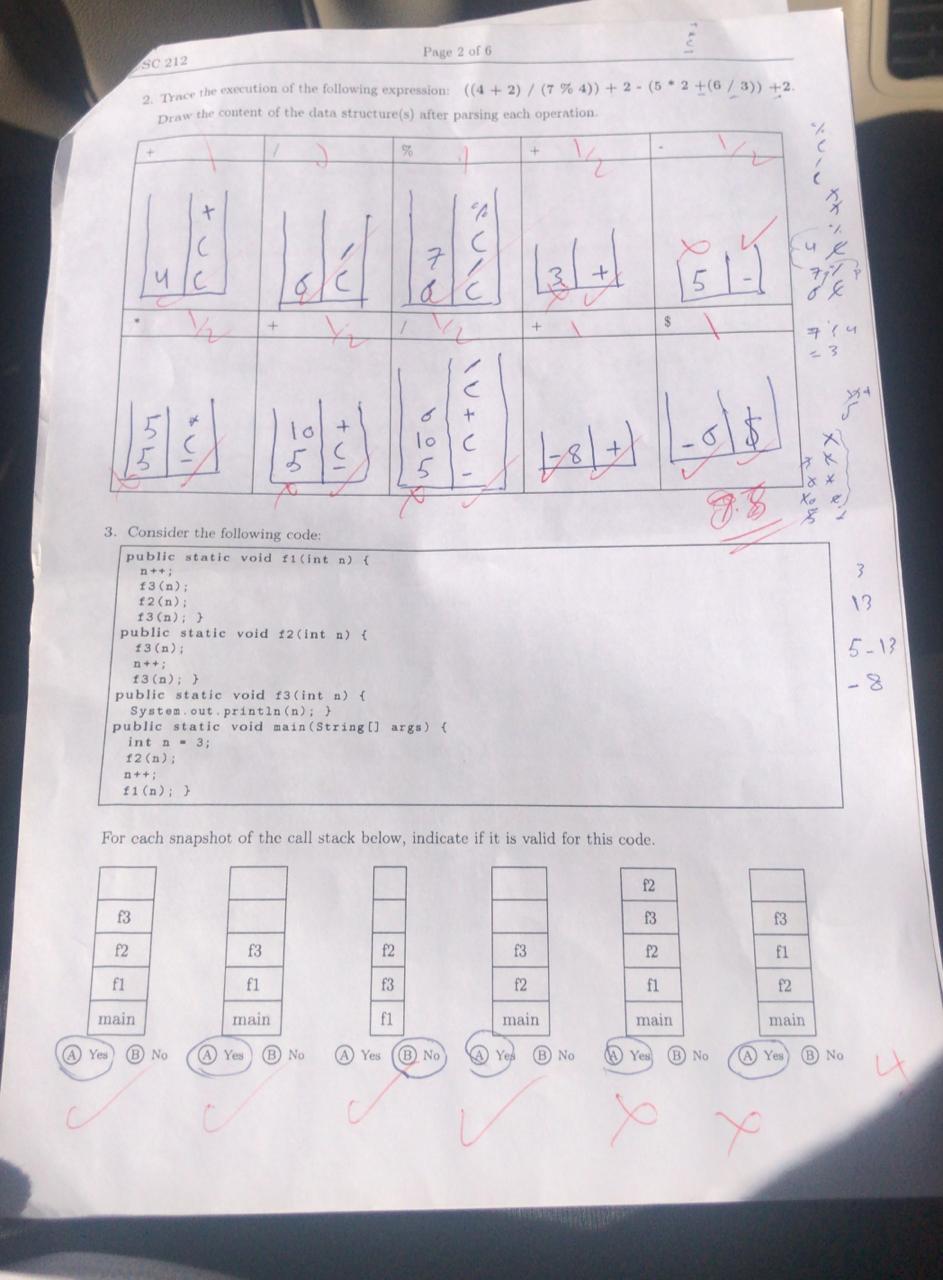 SC 212
Page 2 of 6
2. Trace the execution of the following expression: ((4 + 2) / (7 % 4)) + 2 - (5 * 2 +(6 / 3)) +2.
Draw the content of the data structure(s) after parsing each operation.
+ 1 / % 1 + 1/2 - 1/2
+
(
4 (
/
6 (
%
7 (
/
6 (
3 +
5 -
* 1/2 + 1/2 / 1/2 + 1 $ 1
5 *
(
5 -
10 +
(
5 -
/
(
6 +
10 (
5 -
-8 +
-6 $
8.5
7 % 4
= 3
3. Consider the following code:
public static void f1(int n) {
n++;
f3(n);
f2(n);
f3(n); }
public static void f2(int n) {
f3(n);
n++;
f3(n); }
public static void f3(int n) {
System.out.println(n); }
public static void main(String[] args) {
int n = 3;
f2(n);
n++;
f1(n); }
3
13
5-13
-8
For each snapshot of the call stack below, indicate if it is valid for this code.
f3
f2
f1
main
A Yes B No
f3
f1
main
A Yes B No
f2
f3
f1
A Yes B No
f3
f2
main
A Yes B No
f2
f3
f2
f1
main
A Yes B No
f3
f1
f2
main
A Yes B No
4